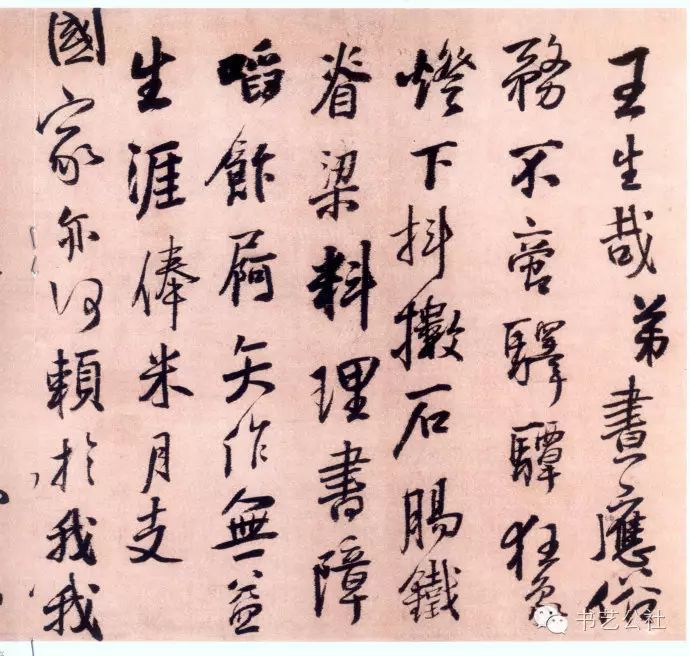 王生哉弟晝應俗
務不啻驛驔狂
燈下抖擻石腸鐵
脊梁料理書障
啗飰屙矢作無益
生涯俸米月支
國家亦何賴於我我
书艺公社